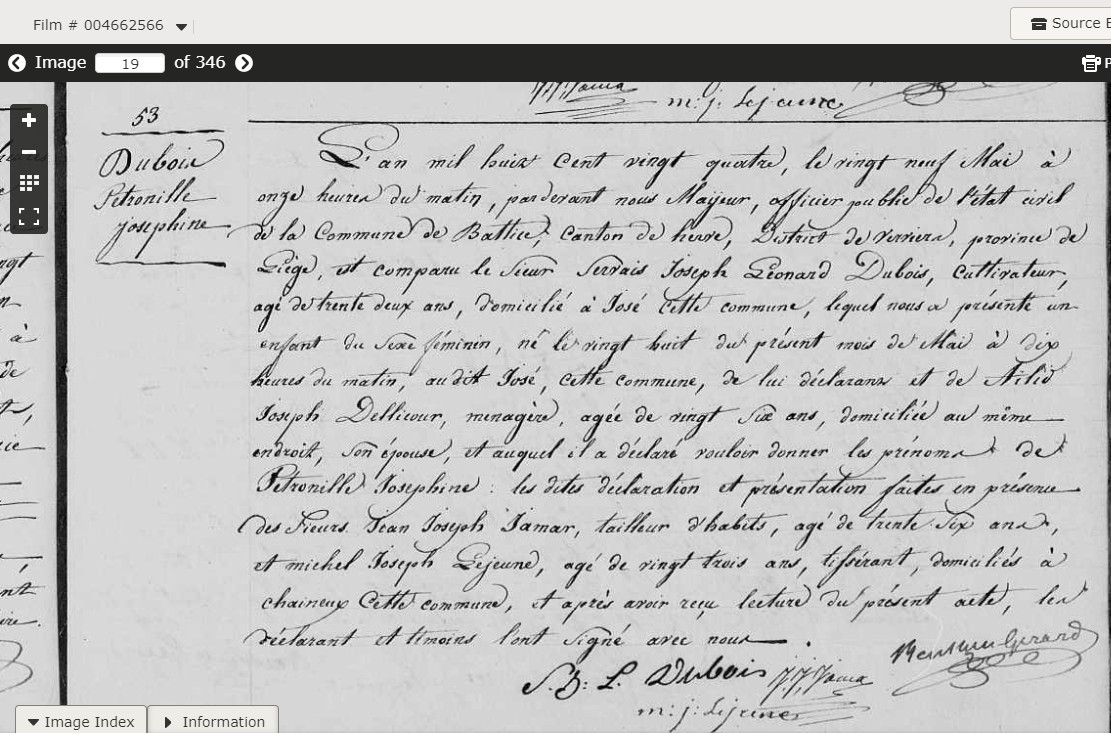 Film # 004662566
Source E
Image 19 of 346
P
m: j. Lejeune
53
Dubois
Petronille
josephine
L'an mil huit Cent vingt quatre, le vingt neuf Mai à
onze heures du matin, pardevant nous Majeur, officier public de l'état civil
de la Commune de Battice, Canton de herve, District de Verviers, province de
Liège, est comparu le Sieur Servais Joseph Léonard Dubois, Cultivateur,
agé de trente deux ans, domicilié à José Cette commune, lequel nous a présenté un
enfant du Sexe féminin, né le vingt huit du présent mois de Mai à dix
heures du matin, audit José, cette commune, de lui déclarant et de
Joseph Dellicour, menagère, agée de vingt Six ans, domiciliée au même
endroit, Son épouse, et auquel il a déclaré vouloir donner les prénoms de
Petronille Josephine : les dites déclaration et présentation faites en présence
des Sieurs Jean Joseph Jamar, tailleur d'habits, agé de trente Six ans,
et michel Joseph Lejeune, agé de vingt trois ans, tisserant, domiciliés à
chaineux Cette commune, et après avoir reçu lecture du présent acte, les
déclarant et témoins l'ont Signé avec nous.
S. J: L. Dubois
m: j: Lejeune
Image Index
Information